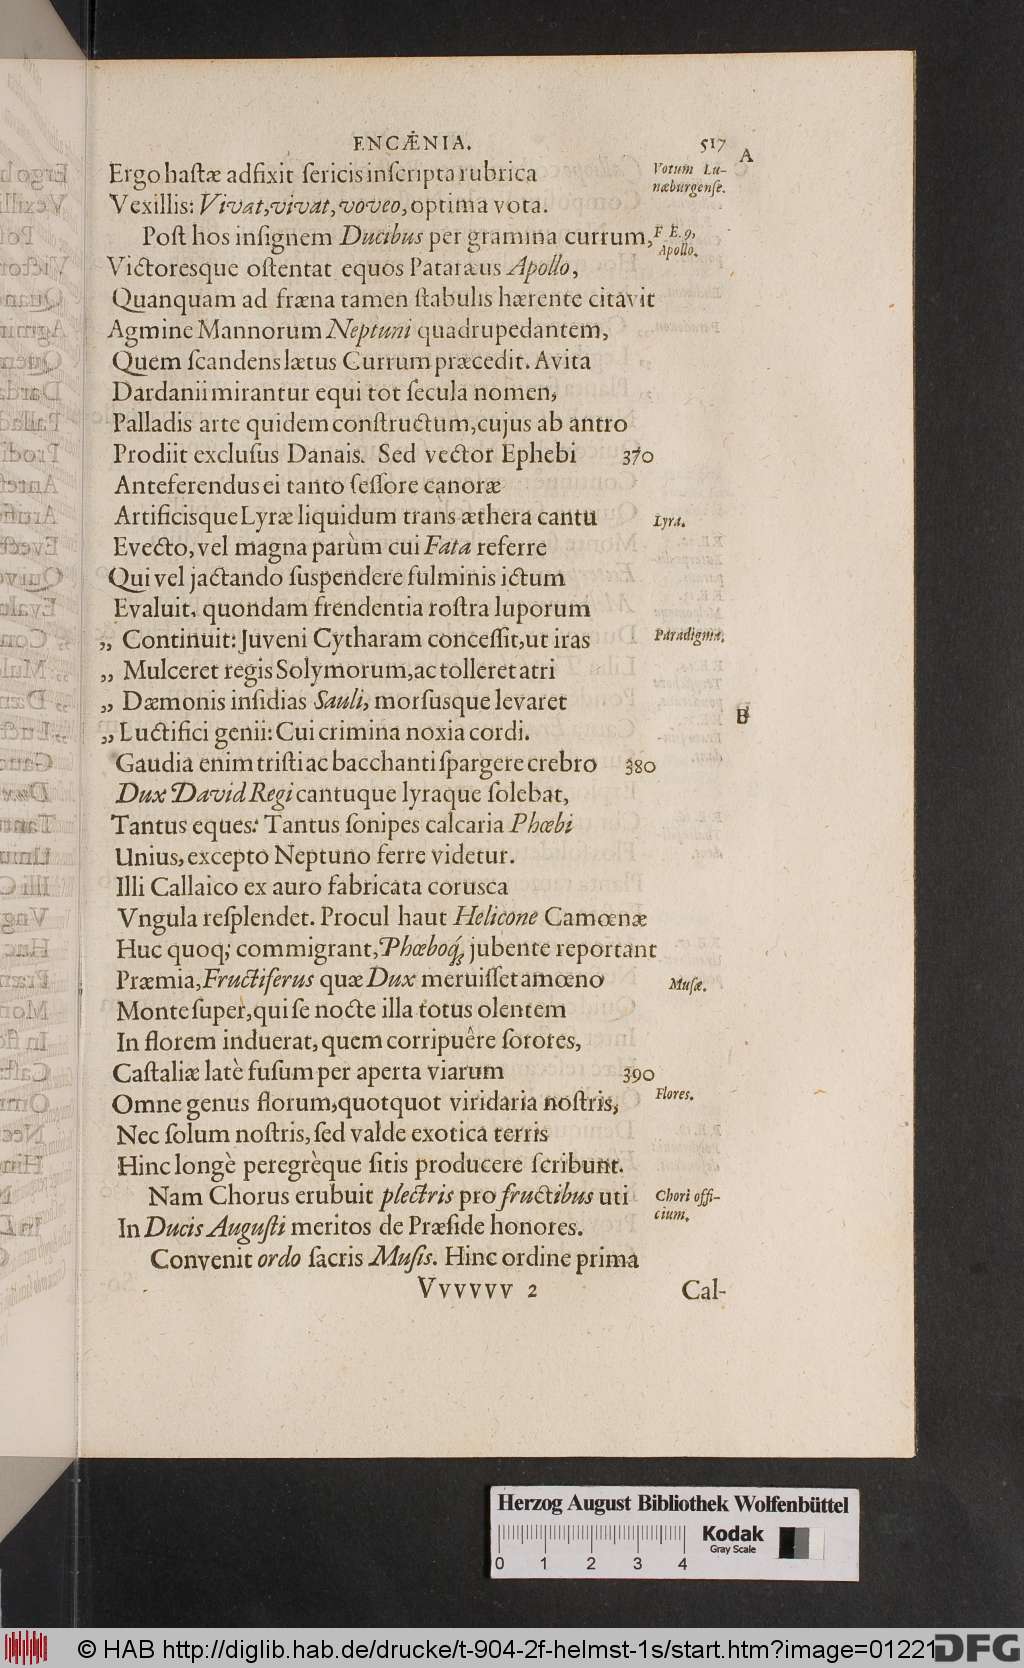 ENCÆNIA. 517
A
Ergo haſtæ adfixit ſericis inſcripta rubrica
Votum Lu-
næburgenſe.
Vexillis: Vivat, vivat, voveo, optima vota.
Poſt hos inſignem Ducibus per gramina currum,
F E. 9,
Apollo.
Victoresque oſtentat equos Pataræus Apollo,
Quanquam ad fræna tamen ſtabulis hærente citavit
Agmine Mannorum Neptuni quadrupedantem,
Quem ſcandens lætus Currum præcedit. Avita
Dardanii mirantur equi tot ſecula nomen,
Palladis arte quidem conſtructum, cujus ab antro
Prodiit excluſus Danais. Sed vector Ephebi 370
Anteferendus ei tanto ſeſſore canoræ
Artificisque Lyræ liquidum trans æthera cantu
Lyra.
Evecto, vel magna parùm cui Fata referre
Qui vel jactando ſuspendere fulminis ictum
Evaluit, quondam frendentia roſtra luporum
„ Continuit: Juveni Cytharam conceſſit, ut iras
Paradigma.
„ Mulceret regis Solymorum, ac tolleret atri
„ Dæmonis inſidias Sauli, morſusque levaret
B
„ Luctifici genii: Cui crimina noxia cordi.
Gaudia enim triſti ac bacchanti ſpargere crebro 380
Dux David Regi cantuque lyraque ſolebat,
Tantus eques: Tantus ſonipes calcaria Phœbi
Unius, excepto Neptuno ferre videtur.
Illi Callaico ex auro fabricata corusca
Vngula reſplendet. Procul haut Helicone Camœnæ
Huc quoq; commigrant, Phœboq́; jubente reportant
Præmia, Fructiferus quæ Dux meruiſſet amœno
Muſæ.
Monte ſuper, qui ſe nocte illa totus olentem
In florem induerat, quem corripuêre ſorores,
Caſtaliæ latè fuſum per aperta viarum 390
Omne genus florum, quotquot viridaria noſtris,
Flores.
Nec ſolum noſtris, ſed valde exotica terris
Hinc longè peregrèque ſitis producere ſcribunt.
Nam Chorus erubuit plectris pro fructibus uti
Chori offi-
cium.
In Ducis Auguſti meritos de Præſide honores.
Convenit ordo ſacris Muſis. Hinc ordine prima
Vvvvvv 2 Cal-
Herzog August Bibliothek Wolfenbüttel
0 1 2 3 4
Kodak
Gray Scale
© HAB http://diglib.hab.de/drucke/t-904-2f-helmst-1s/start.htm?image=01221
DFG